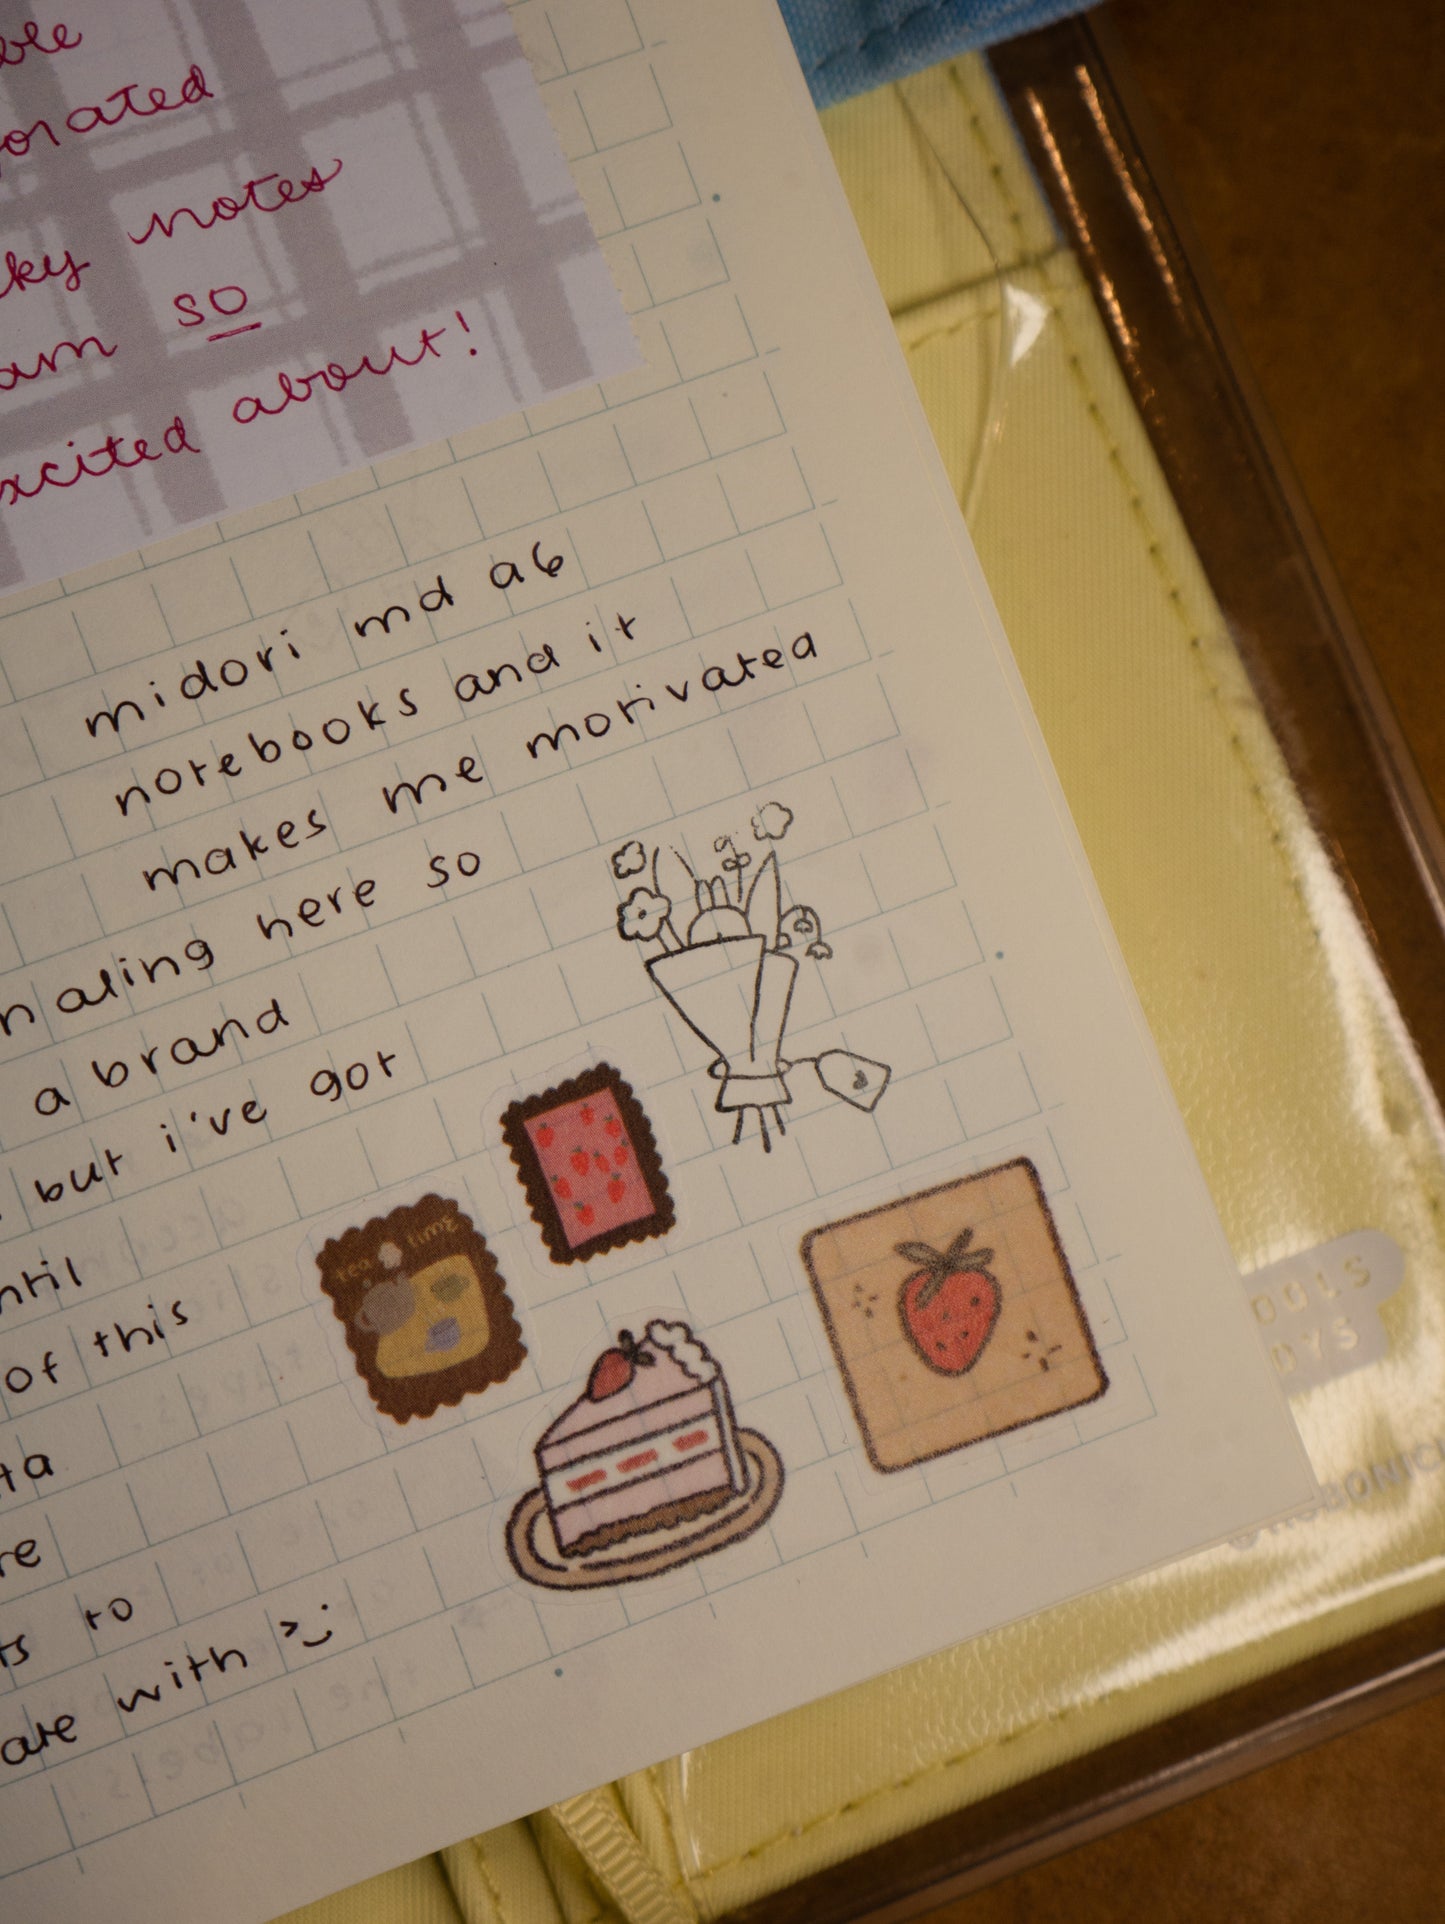 ble
orated
ky notes
am so
xcited about!
midori md a6
notebooks and it
makes me motivated
naling here so
a brand
but i've got
ntil
of this
ta
re
ts to
ate with :)
tea time
DOLS
DYS
BONIC